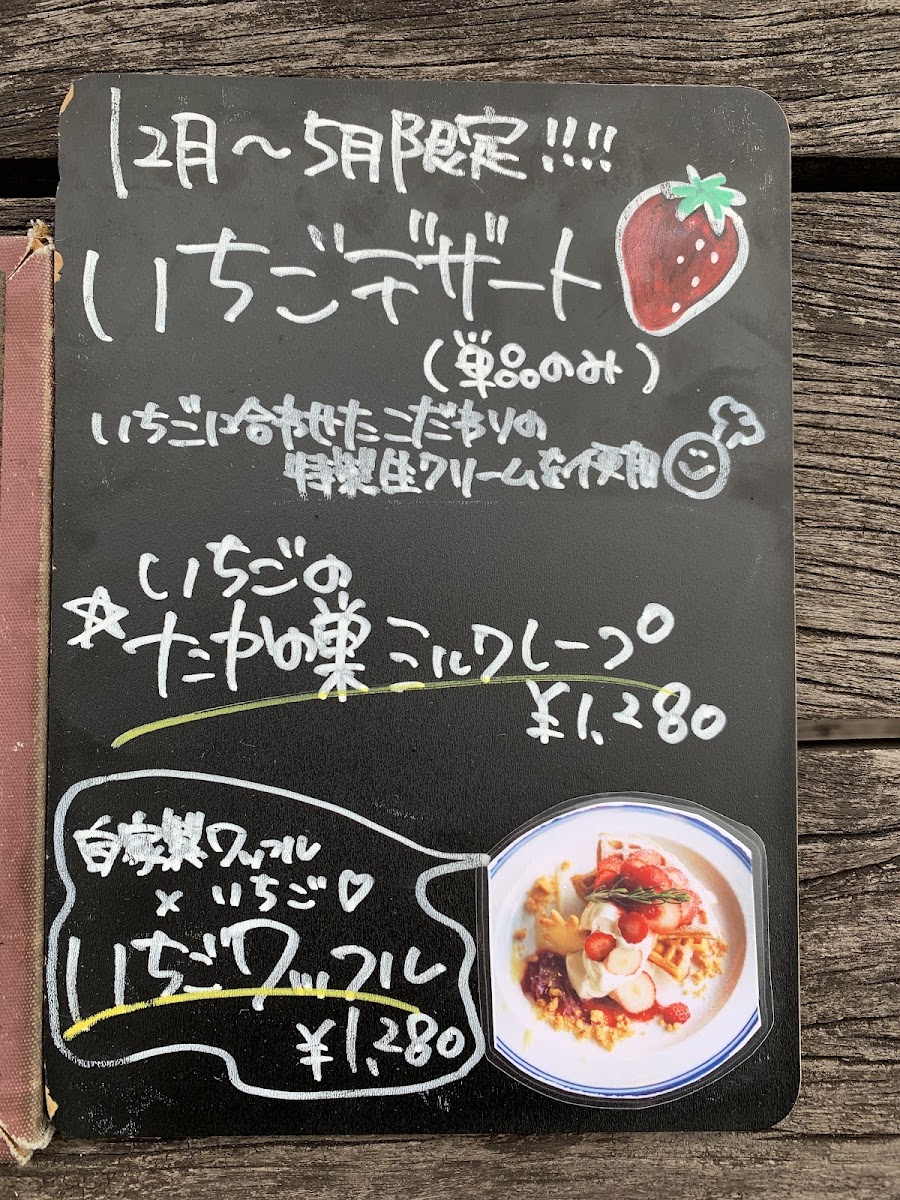 12月～5月限定!!!!
いちごデザート
(単品のみ)
いちごに合わせたこだわりの
特製生クリームを使用
いちごの
☆たかの巣ミルクレープ
¥1,280
自家製ワッフル
×いちご♡
いちごワッフル
¥1,280